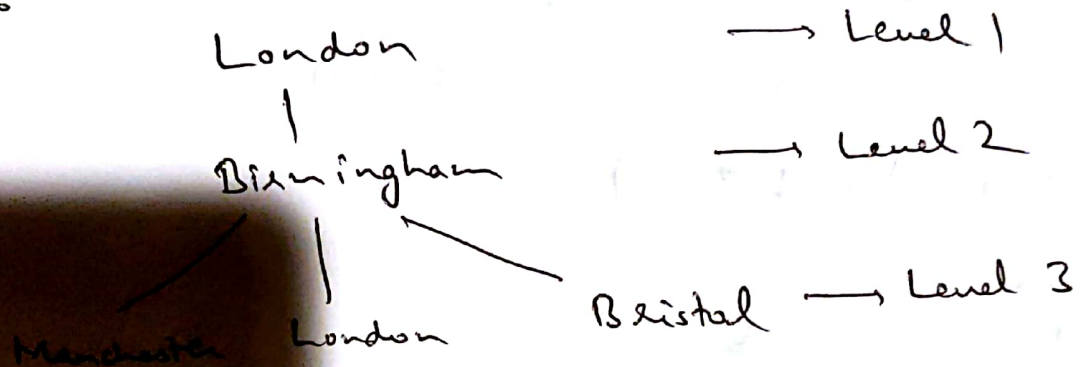 London → Level 1
Birmingham → Level 2
Manchester London Bristol → Level 3